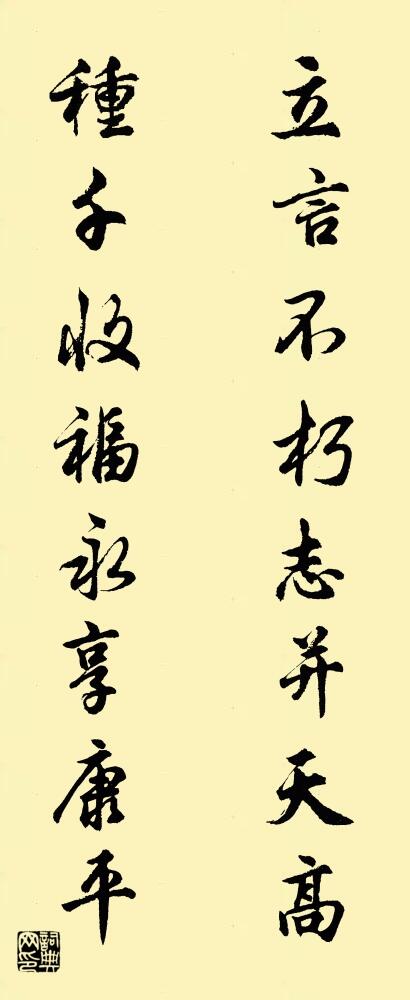 立言不朽志并天高
種千收福永享康平
詞典网印